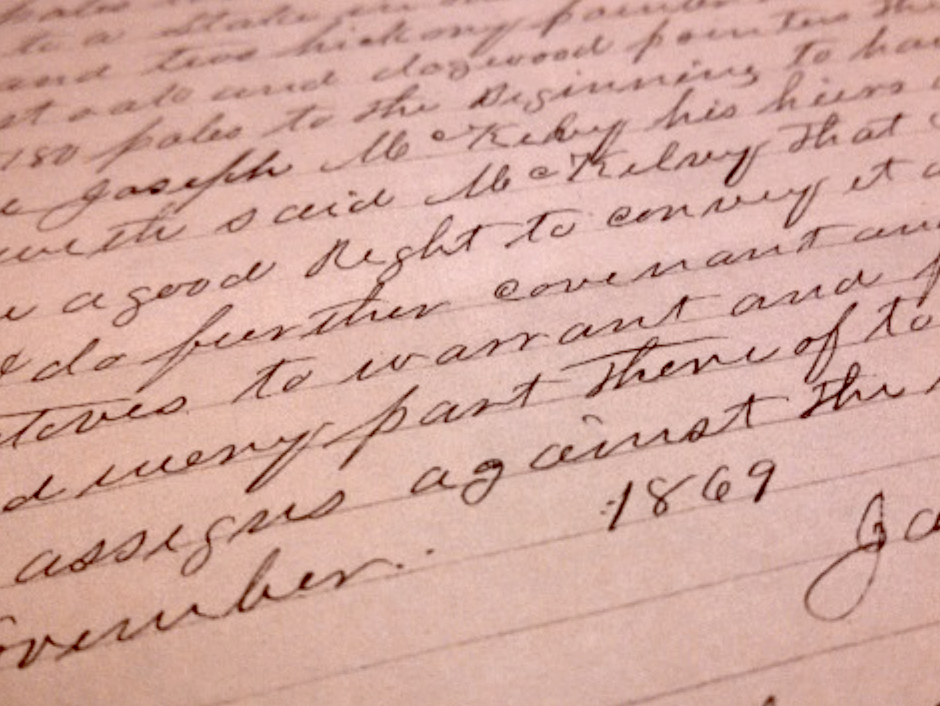 to a Stake in
and two hickory pointer
st oak and dogwood pointers the
180 poles to the Beginning to hav
e Joseph McKelvy his heirs
with said McKelvey that
e a good Right to convey it a
d do further covenant an
tatives to warrant and f
d every part there of to
assigns against the
ovember. 1869
Ja